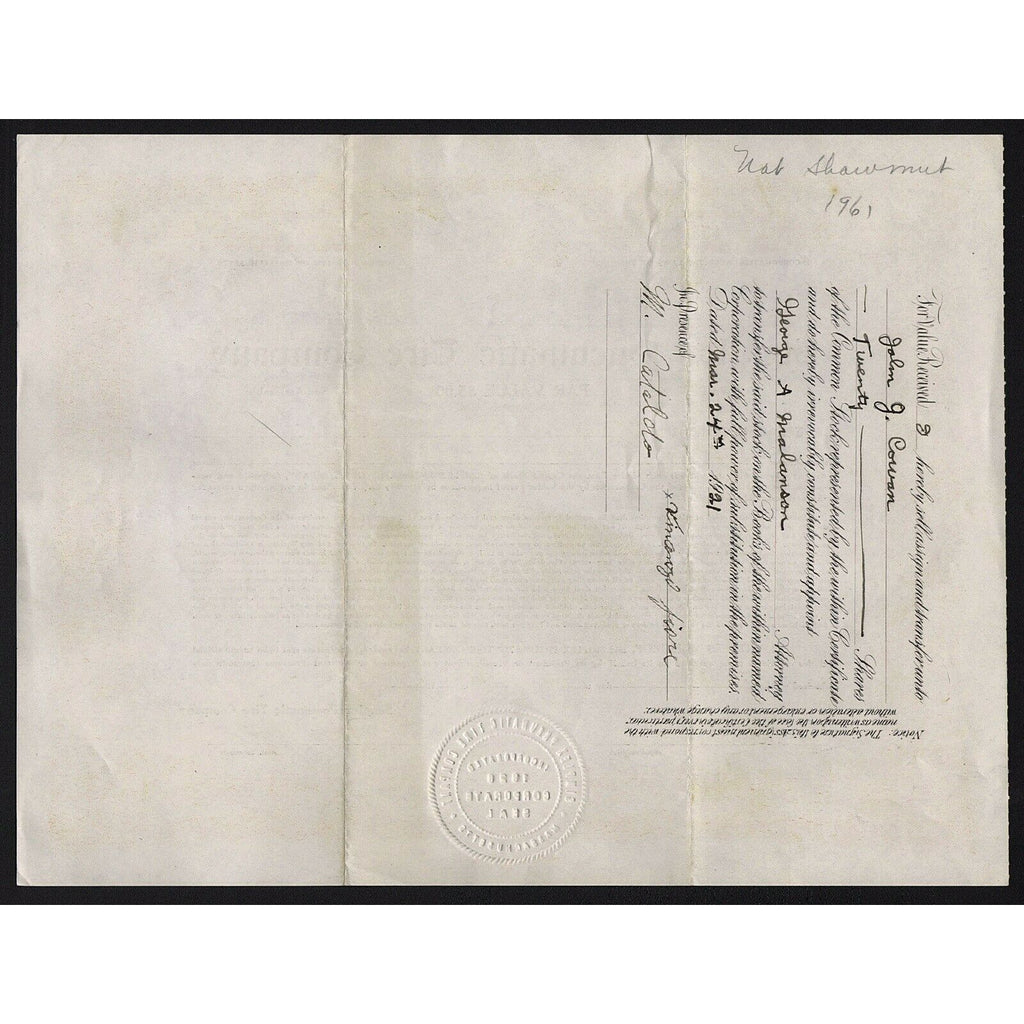 Nat Shawmut
1961
For Value Received I hereby sell assign and transfer unto
John J. Cowan
— Twenty — Shares
of the Common Stock represented by the within Certificate
and do hereby irrevocably constitute and appoint
George A Malanson Attorney
to transfer the said stock on the Books of the within named
Corporation with full power of substitution in the premises.
Dated Mar. 24th 1921
In Presence of
M. Cataldo
Notice: The Signature to this Assignment must correspond with the
name as written upon the face of the Certificate in every particular
without alteration or enlargement or any change whatever.
INCORPORATED
1920
CORPORATE
SEAL
MASSACHUSETTS